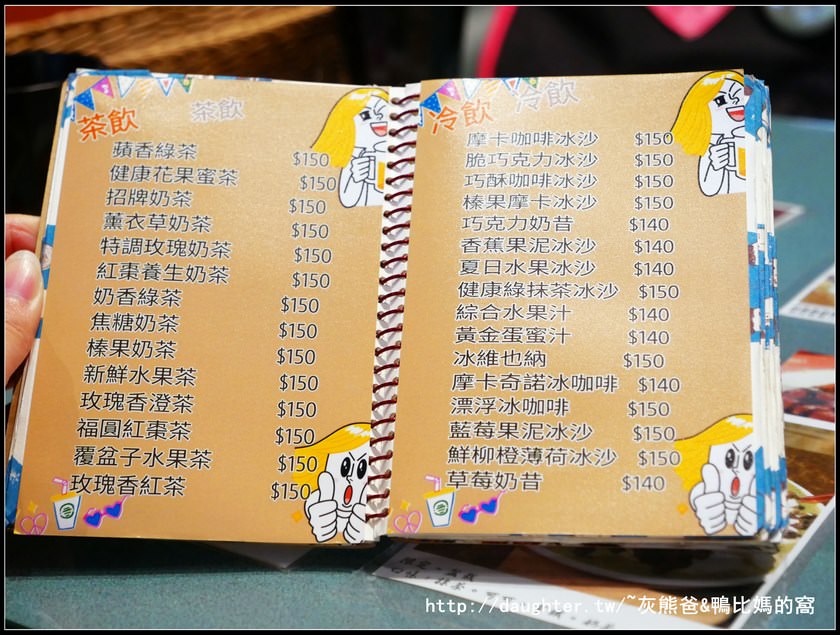 茶飲 茶飲
蘋香綠茶 $150
健康花果蜜茶 $150
招牌奶茶 $150
薰衣草奶茶 $150
特調玫瑰奶茶 $150
紅棗養生奶茶 $150
奶香綠茶 $150
焦糖奶茶 $150
榛果奶茶 $150
新鮮水果茶 $150
玫瑰香澄茶 $150
福圓紅棗茶 $150
覆盆子水果茶 $150
玫瑰香紅茶 $150
冷飲 冷飲
摩卡咖啡冰沙 $150
脆巧克力冰沙 $150
巧酥咖啡冰沙 $150
榛果摩卡冰沙 $150
巧克力奶昔 $140
香蕉果泥冰沙 $140
夏日水果冰沙 $140
健康綠抹茶冰沙 $150
綜合水果汁 $140
黃金蛋蜜汁 $140
冰維也納 $150
摩卡奇諾冰咖啡 $140
漂浮冰咖啡 $150
藍莓果泥冰沙 $150
鮮柳橙薄荷冰沙 $150
草莓奶昔 $140
http://daughter.tw/~灰熊爸&鴨比媽的窩